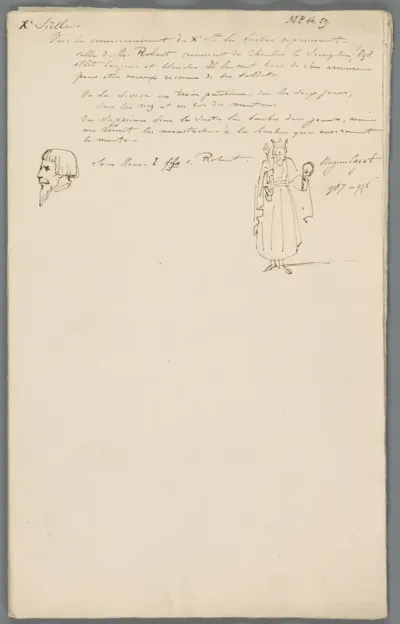 Xe Siècle.
MS 44.59.
Vers le commencement du Xe S. les barbes reprennent.
celle de Robert concurrent de Charles le Simple
était longue et blanche. Il la mit hors de son armure
pour être mieux reconnu de ses soldats.
On la divisa en trois parties, sur les deux joues,
sous le nez et au bas du menton.
On supprima dans la suite la barbe des joues, mais
on réunit les moustaches à la barbe qui environnait
le menton.
sous Henri I fils de Robert.
Hugues Capet
987 – 996